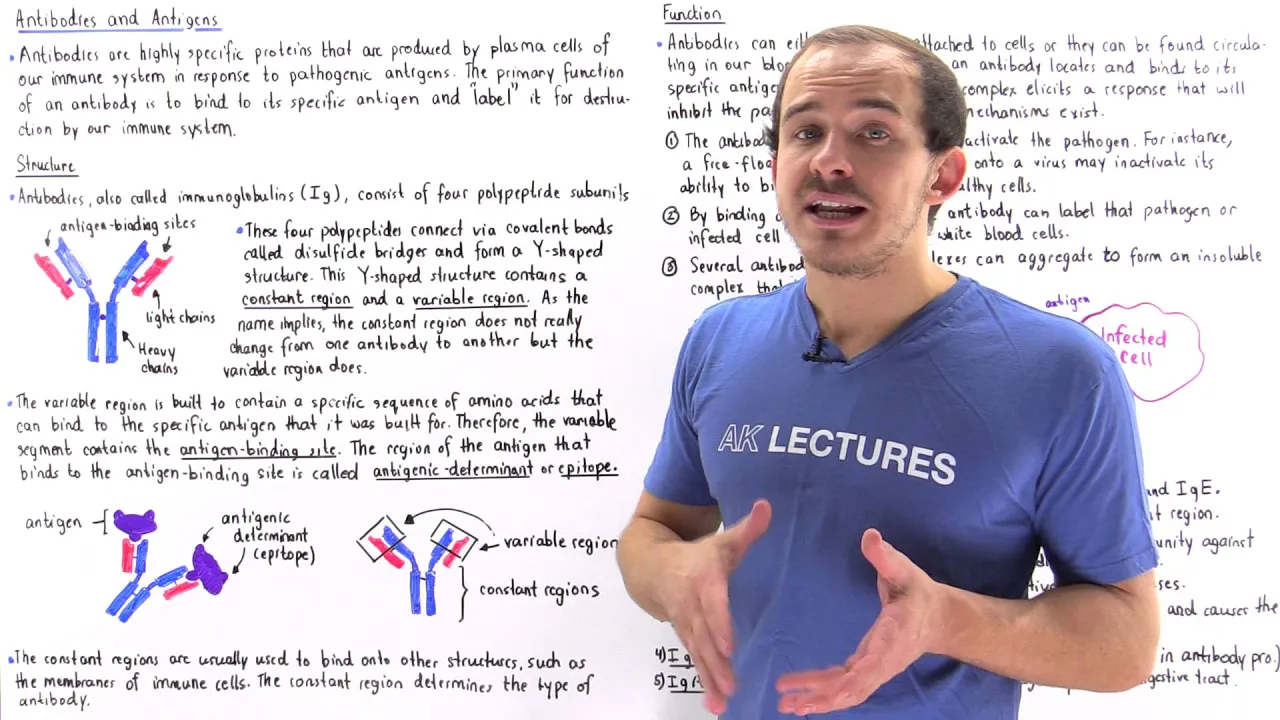 Antibodies and Antigens
• Antibodies are highly specific proteins that are produced by plasma cells of
our immune system in response to pathogenic antigens. The primary function
of an antibody is to bind to its specific antigen and "label" it for destru-
ction by our immune system.
Structure
• Antibodies, also called immunoglobulins (Ig), consist of four polypeptide subunits
antigen-binding sites
light chains
Heavy
chains
• These four polypeptides connect via covalent bonds
called disulfide bridges and form a Y-shaped
structure. This Y-shaped structure contains a
constant region and a variable region. As the
name implies, the constant region does not really
change from one antibody to another but the
variable region does.
• The variable region is built to contain a specific sequence of amino acids that
can bind to the specific antigen that it was built for. Therefore, the variable
segment contains the antigen-binding site. The region of the antigen that
binds to the antigen-binding site is called antigenic-determinant or epitope.
antigen
antigenic
determinant
(epitope)
variable region
constant regions
• The constant regions are usually used to bind onto other structures, such as
the membranes of immune cells. The constant region determines the type of
antibody.
Function
• Antibodies can attached to cells or they can be found circula-
ting in our an antibody locates and binds to its
specific complex elicits a response that will
inhibit the mechanisms exist.
① The activate the pathogen. For instance,
a onto a virus may inactivate its
ability to cells.
② By binding antibody can label that pathogen or
infected cell white blood cells.
③ Several can aggregate to form an insoluble
complex
antigen
Infected
cell
AK LECTURES
and IgE.
region.
against
and causes the
4) in antibody pro.)
5) tract.